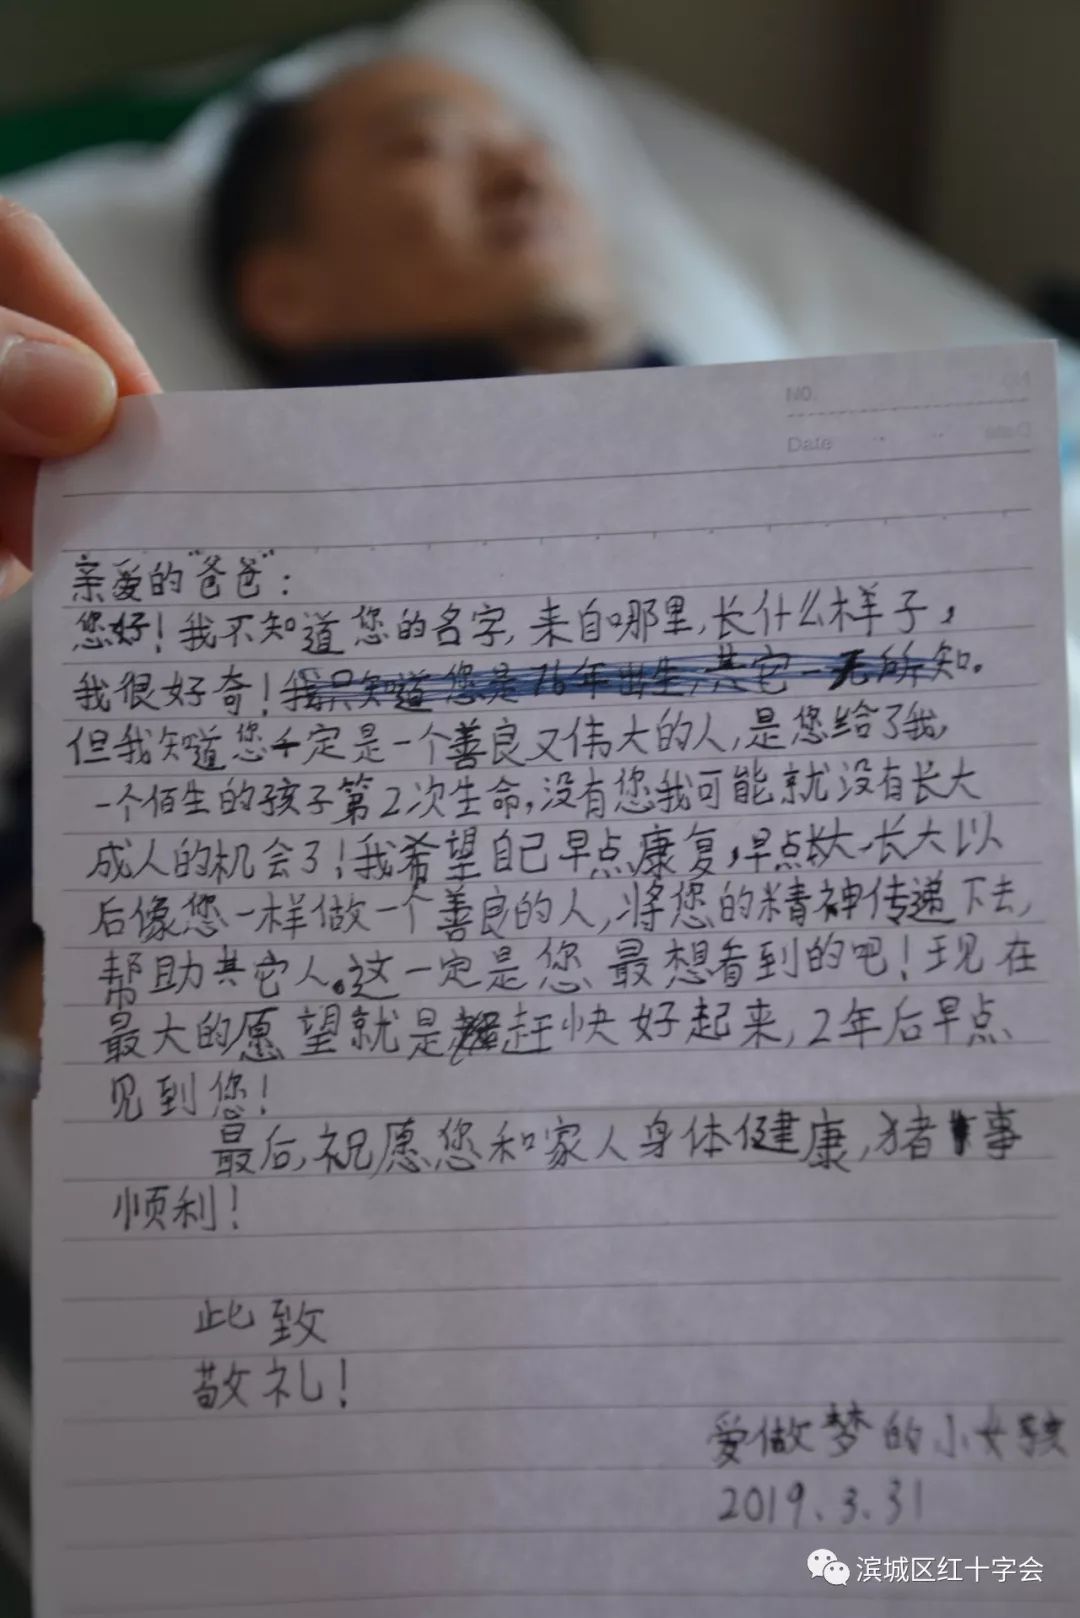 No.
Date
亲爱的"爸爸"：
您好！我不知道您的名字，来自哪里，长什么样子，
我很好奇！我只知道您是76年出生，其它一无所知。
但我知道您一定是一个善良又伟大的人，是您给了我，
一个佰生的孩子第2次生命，没有您我可能就没有长大
成人的机会了！我希望自己早点康复，早点长大，长大以
后像您一样做一个善良的人，将您的精神传递下去，
帮助其它人。这一定是您最想看到的吧！现在
最大的愿望就是赶快好起来，2年后早点
见到您！
最后，祝愿您和家人身体健康，猪事
顺利！
此致
敬礼！
爱做梦的小女孩
2019.3.31
滨城区红十字会